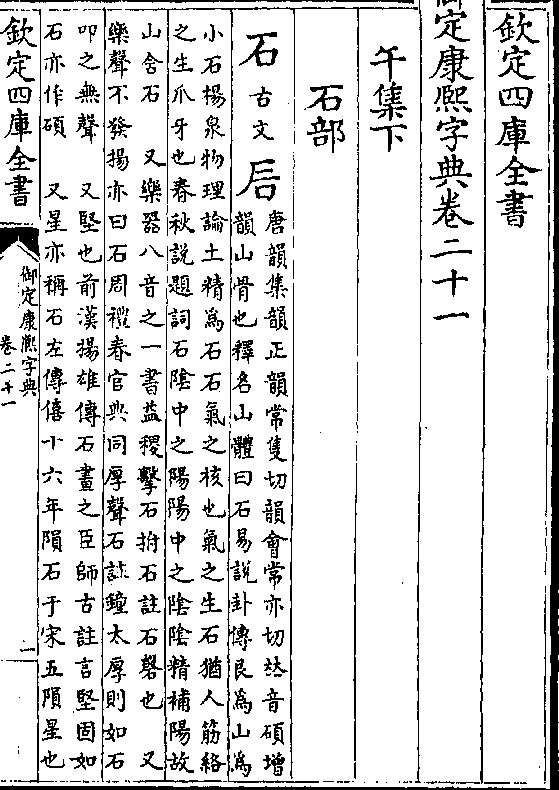 欽定四庫全書
御定康熙字典卷二十一
午集下
石部
石古文𠩖
唐韻集韻正韻常隻切韻會常亦切𠀤音碩增
韻山骨也釋名山體曰石易說卦傳艮為山為
小石楊泉物理論土精為石石氣之核也氣之生石猶人筋絡
之生爪牙也春秋説題詞石陰中之陽陽中之陰陰精補陽故
山含石 又樂器八音之一書益稷擊石拊石註石磬也 又
樂聲不發揚亦曰石周禮春官典同厚聲石註鐘太厚則如石
叩之無聲 又堅也前漢揚雄傳石畫之臣師古註言堅固如
石亦作碩 又星亦稱石左傳僖十六年隕石于宋五隕星也
欽定四庫全書
御定康熙字典
卷二十一
一